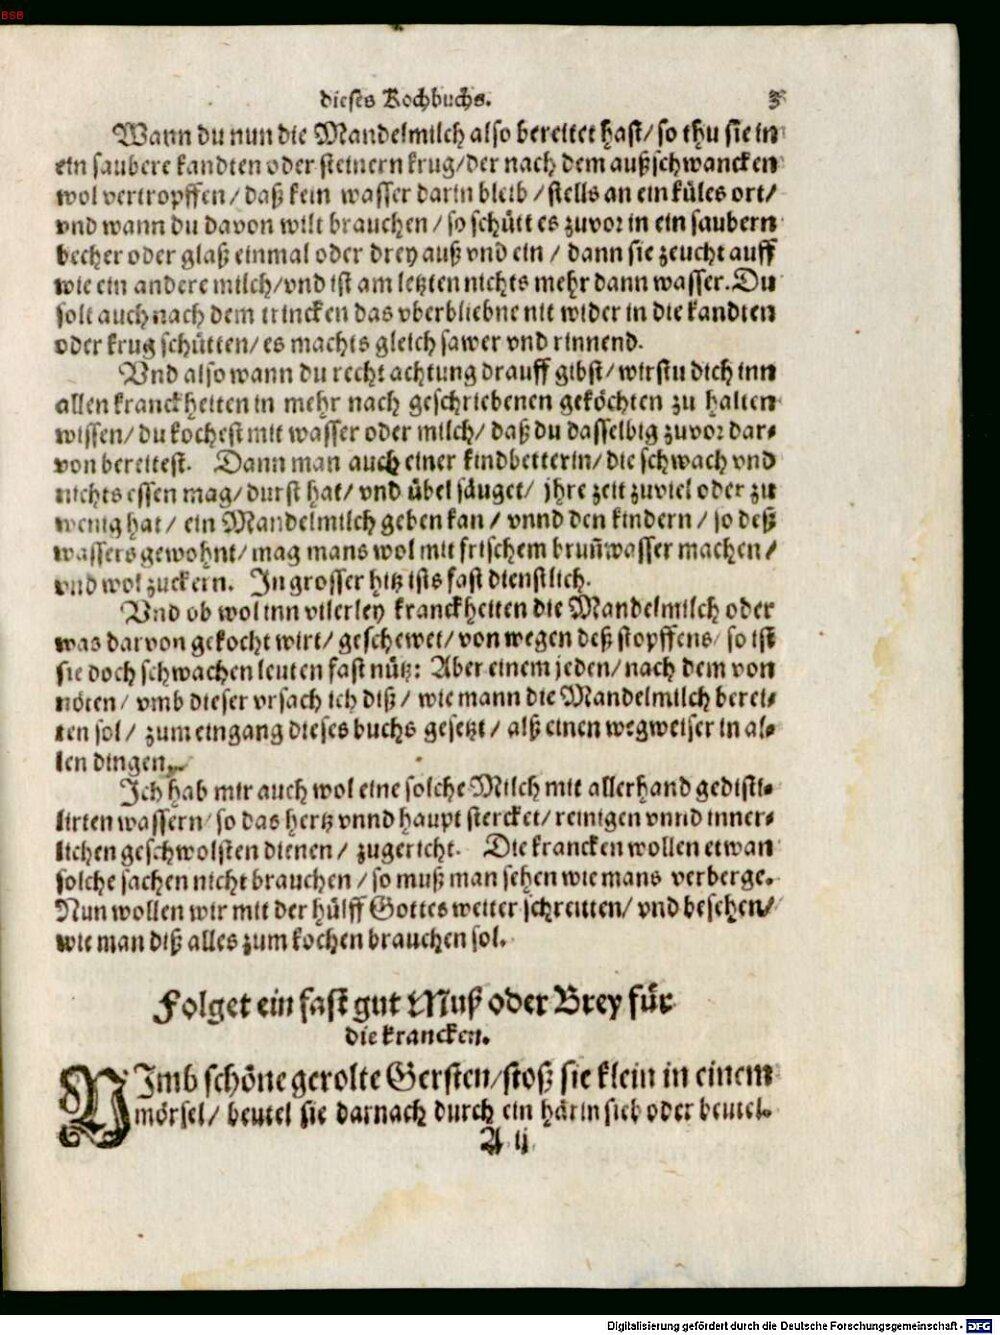 BSB
dieses Kochbuchs. 3
Wann du nun die Mandelmilch also bereitet hast/ so thu sie in
ein saubere kandten oder steinern krug/ der nach dem außschwancken
wol vertropffen/ daß kein wasser darin bleib/ stells an ein küles ort/
vnd wann du davon wilt brauchen/ so schütt es zuvor in ein saubern
becher oder glaß einmal oder drey auß vnd ein/ dann sie zeucht auff
wie ein andere milch/ vnd ist am letzten nichts mehr dann wasser. Du
solt auch nach dem trincken das vberbliebne nit wider in die kandten
oder krug schütten/ es machts gleich sawer vnd rinnend.
Vnd also wann du recht achtung drauff gibst/ wirstu dich inn
allen kranckheiten in mehr nach geschriebenen geköchten zu halten
wissen/ du kochest mit wasser oder milch/ daß du dasselbig zuvor dar-
von bereitest. Dann man auch einer kindbetterin/ die schwach vnd
nichts essen mag/ durst hat/ vnd übel säuget/ jhre zeit zuviel oder zu
wenig hat/ ein Mandelmilch geben kan/ vnnd den kindern/ so deß
wassers gewohnt/ mag mans wol mit frischem brun̄wasser machen/
vnd wol zuckern. In grosser hitz ists fast dienstlich.
Vnd ob wol inn vilerley kranckheiten die Mandelmilch oder
was darvon gekocht wirt/ geschewet/ von wegen deß stopffens/ so ist
sie doch schwachen leuten fast nütz: Aber einem jeden/ nach dem von
nöten/ vmb dieser vrsach ich diß/ wie mann die Mandelmilch berei-
ten sol/ zum eingang dieses buchs gesetzt/ alß einen wegweiser in al-
len dingen.
Ich hab mir auch wol eine solche Milch mit allerhand gedisti-
lirten wassern/ so das hertz vnnd haupt stercket/ reinigen vnnd inner-
lichen geschwolsten dienen/ zugericht. Die krancken wollen etwan
solche sachen nicht brauchen/ so muß man sehen wie mans verberge.
Nun wollen wir mit der hülff Gottes weiter schreitten/ vnd besehen/
wie man diß alles zum kochen brauchen sol.
Folget ein fast gut Muß oder Brey für
die krancken.
NImb schöne gerolte Gersten/ stoß sie klein in einem
mörsel/ beutel sie darnach durch ein härin sieb oder beutel.
A ij
Digitalisierung gefördert durch die Deutsche Forschungsgemeinschaft - DFG